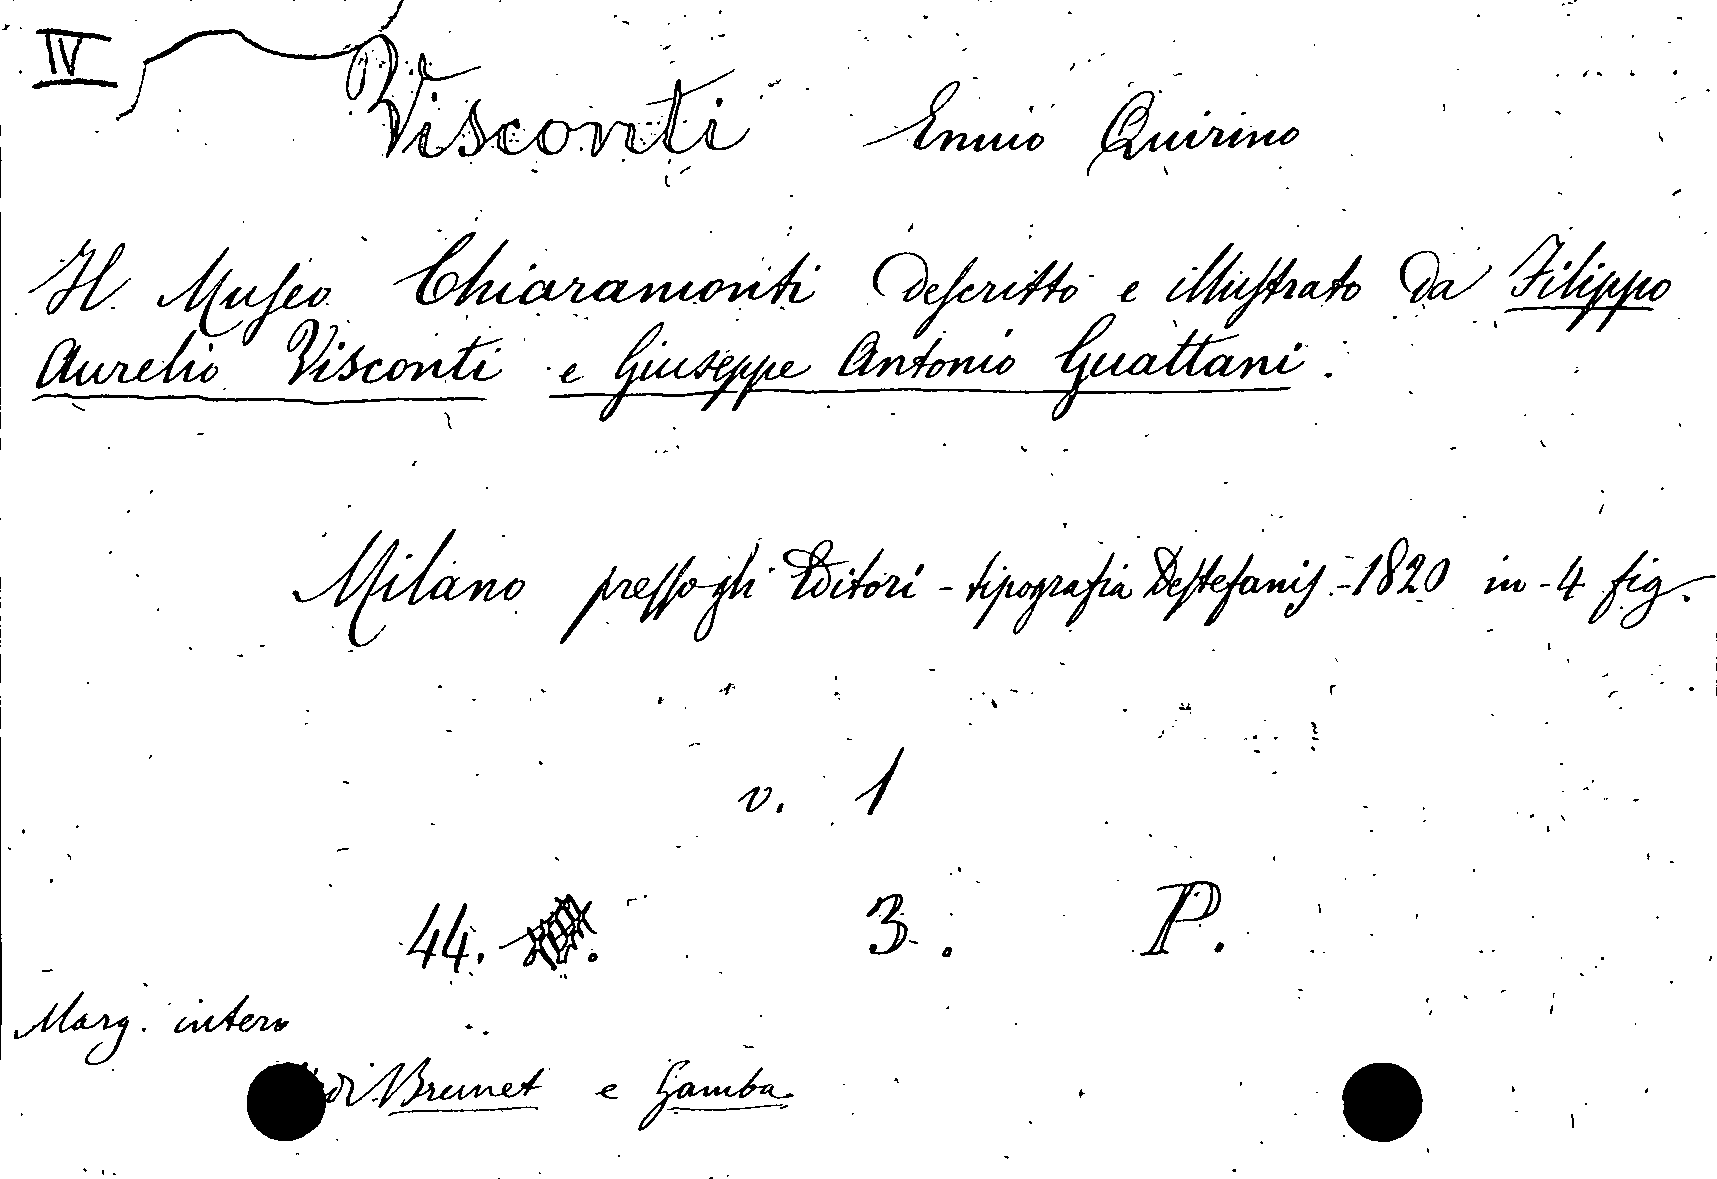 IV
Visconti Ennio Quirino
Il Museo Chiaramonti descritto e illustrato da Filippo
Aurelio Visconti e Giuseppe Antonio Guattani.
Milano presso gli Editori - tipografia Destefanis - 1820 in - 4 fig.
v. 1
44. 3. P.
Marg. intern
di Brunet e Gamba